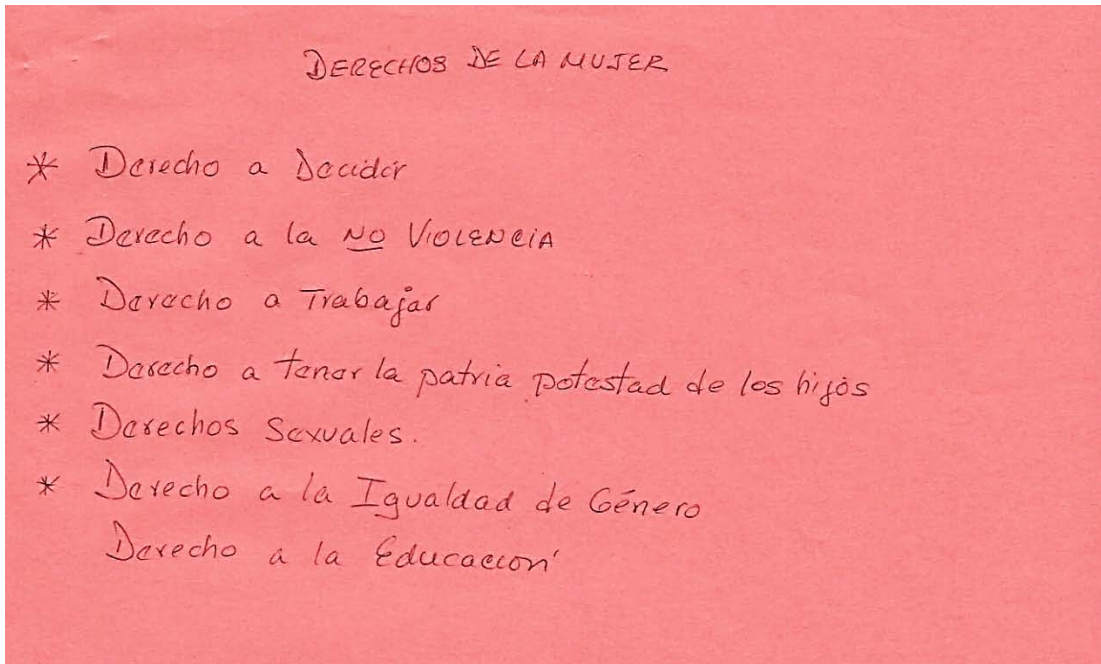 DERECHOS DE LA MUJER
* Derecho a Decidir
* Derecho a la NO VIOLENCIA
* Derecho a Trabajar
* Derecho a tener la patria potestad de los hijos
* Derechos Sexuales.
* Derecho a la Igualdad de Género
Derecho a la Educación